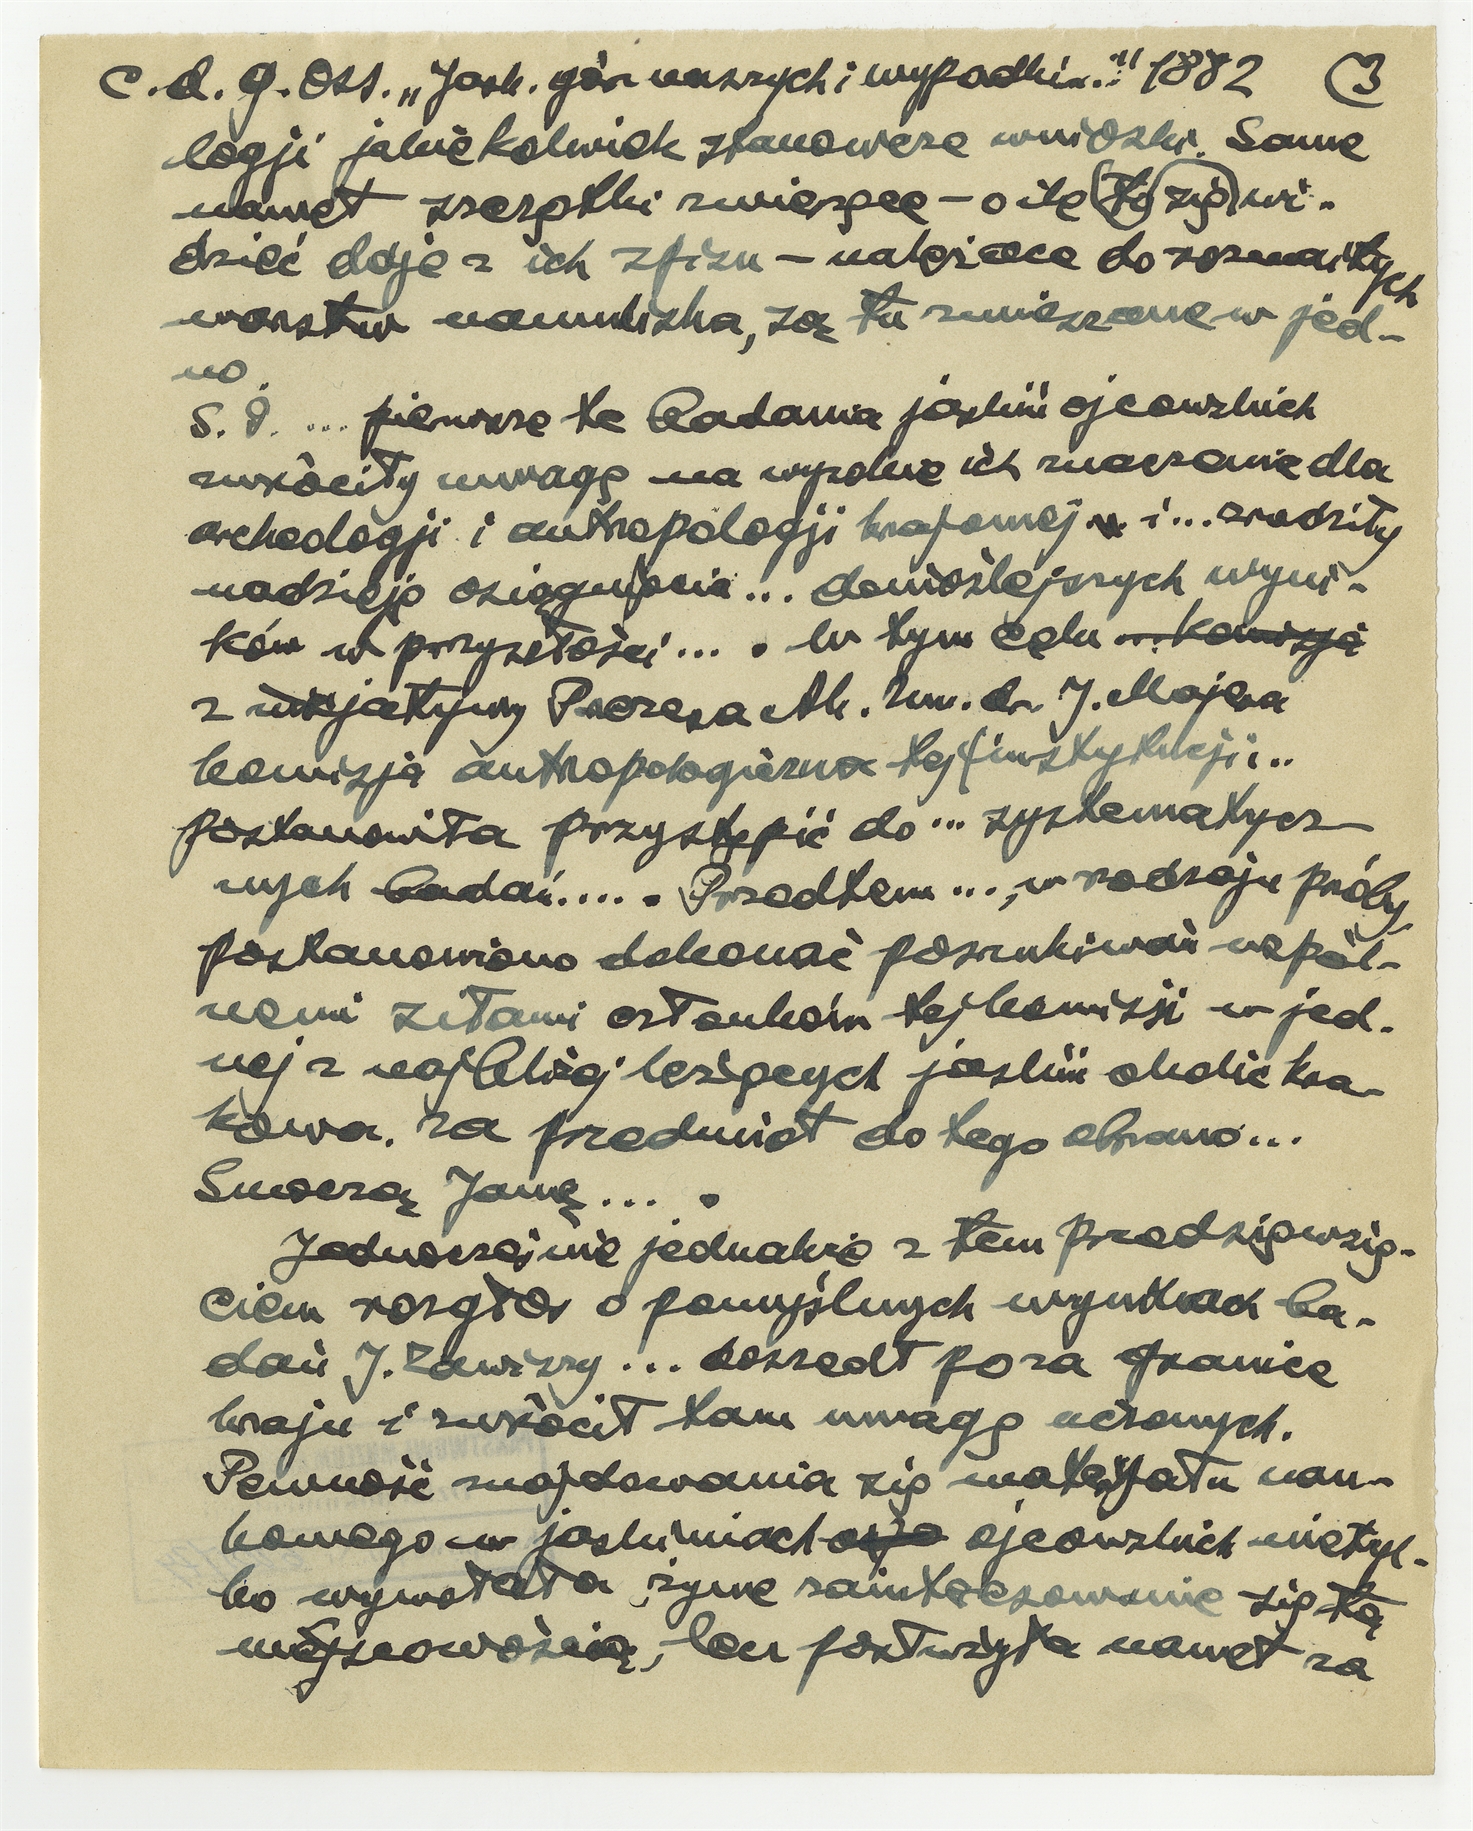 c.d. G. Oss. „Jask. gór naszych i wypadki...." 1882 3
logji jakiekolwiek stanowcze wnioski. Same
nawet szczątki zwierzęce – o ile to się wi-
dzieć daje z ich spisu – należące do rozmaitych
warstw namuliska, są tu zmieszane w jed-
no.
S. 8. ... pierwsze te badania jaskiń ojcowskich
zwróciły uwagę na wysokie ich znaczenie dla
archeologji i antropologji krajowej i ... zrodziły
nadzieję osiągnięcia ... donioślejszych wyni-
ków w przyszłości ... . W tym celu ... komisja
z inicjatywy Prezesa Ak. Um. dr. J. Majera
komisja antropologiczna tej instytucji ...
postanowiła przystąpić do ... systematycz-
nych badań..... Przedtem ..., w rodzaju próby,
postanowiono dokonać poszukiwań wspól-
nemi siłami członków tej komisji w jed-
nej z najbliżej leżących jaskiń okolic Kra-
kowa. Za przedmiot do tego obrano...
Smoczą Jamę ... .
Jednocześnie jednakże z tem przedsięwzię-
ciem rozgłos o pomyślnych wynikach ba-
dań J. Zawiszy ... doszedł poza granice
kraju i zwrócił tam uwagę uczonych.
Pewność znajdowania się materjału nau-
kowego w jaskiniach ojcowskich nietyl-
ko wywołała żywe zainteresowanie się tą
miejscowością, lecz posłużyła nawet za